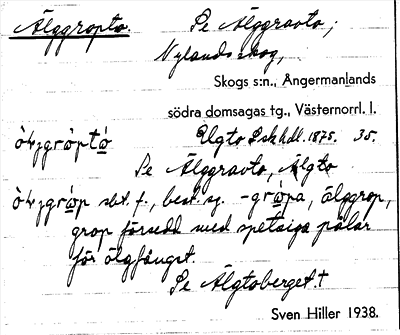 Älggropto. Se Älggravto;
Nylandsskog,
Skogs s:n., Ångermanlands
södra domsagas tg., Västernorrl. l.
Älgto Lskhdl. 1875. 35.
Se Älggravto, Älgto
sbt. f., best. sg. -grópa, älggrop,
grop försedd med spetsiga pålar
för älgfångst.
Se Älgtoberget. †
Sven Hiller 1938.